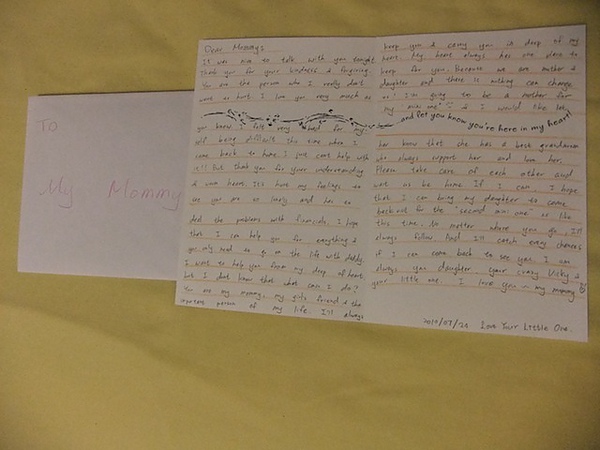 To
My Mommy
Dear Mommy,
It was nice to talk with you tonight
Thank you for your kindness & forgiving.
You are the person who I really don't
want to hurt I love you very much as
you know I felt very bad for my
self being difficult this time when I
come back to home. I just can't help with
it!! But thank you for your understanding
& warm hears. It's hurt my feelings to
see you are so lonely and has to
deal the problems with financials. I hope
that I can help you for everything &
you only need to go on the life with daddy.
I want to help you from my deep of heart
but I don't know that what can I do?
You are my mommy, my girls friend & the
important person of my life. I'll always
keep you & carry you in deep of my
heart. My heart always has one place to
keep for you. Because we are mother &
daughter and there is nothing can change
as I'm going to be a mother for
my "mini one" & I would like let
and let you know you're here in my heart!
her know that she has a best grandmom
who always support her and love her.
Please take care of each other and
wait us be home If I can, I hope
that I can bring my daughter to come
back not for the "second mini one" as like
this time. No matter where you go I'll
always follow And I'll catch every chances
if I can come back to see you. I am
always your daughter your crazy Vicky &
your little one. I love you ~ my mommy
2010/03/21 Love Your Little One.